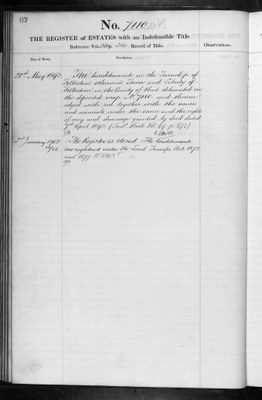 No. 7110
THE REGISTER of ESTATES with an Indefeasible Title
Reference Vol. Record of Title.
Observations.
Date of Entry.
Description.
20th May 1893.
The hereditaments in the Township of
Folkestone otherwise Town and Liberty of
Folkestone in the County of Kent delineated on
the deposited map No. 7110 and thereon
edged with red together with the mines
and minerals under the same and the right
of way and drainage granted by deed dated
7th April 1893.
January 1902
The Register is closed. The hereditaments
are registered under the Land Transfer Acts 1875
and 1897 No.